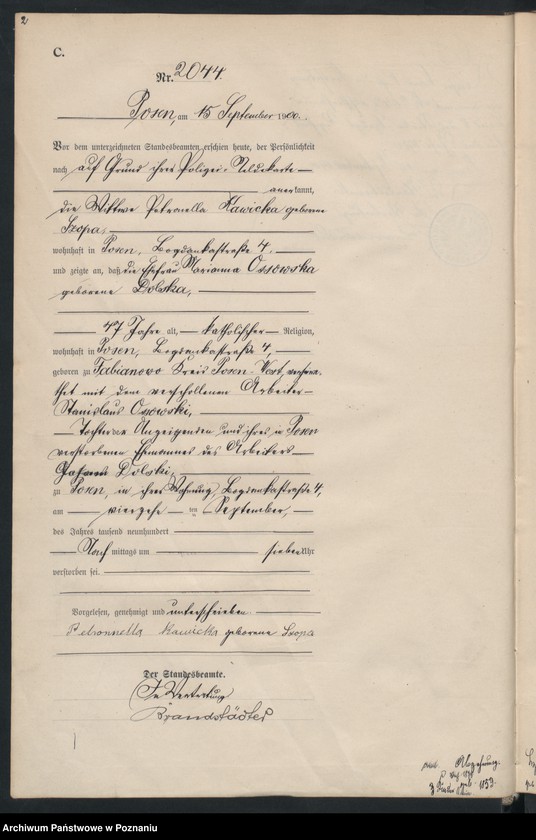 2
C.
Nr. 2044.
Posen, am 15 September 1900.
Vor dem unterzeichneten Standesbeamten erschien heute, der Persönlichkeit
nach auf Grund ihrer Polizei-Meldekarte
anerkannt,
die Wittwe Petronella Kawicka geborene
Szopa,
wohnhaft in Posen, Bogdankastraße 4.
und zeigte an, daß die Ehefrau Marianna Ossowska
geborene Dolska,
47 Jahre alt, katholischer Religion,
wohnhaft in Posen, Bogdankastraße 4,
geboren zu Fabianowo Kreis Posen-West, verheira-
thet mit dem verschollenen Arbeiter
Stanislaus Ossowski,
Tochter der Anzeigenden und ihres in Posen
verstorbenen Ehemannes des Arbeiters
Dolski,
zu Posen, in ihrer Wohnung, Bogdankastraße 4,
am vierzehn ten September,
des Jahres tausend neunhundert
Nach mittags um sieben Uhr
verstorben sei.
Vorgelesen, genehmigt und unterschrieben
Petronnella Kawicka geborene Szopa
Der Standesbeamte.
In Vertretung
Brandstädter
1153.
Archiwum Państwowe w Poznaniu